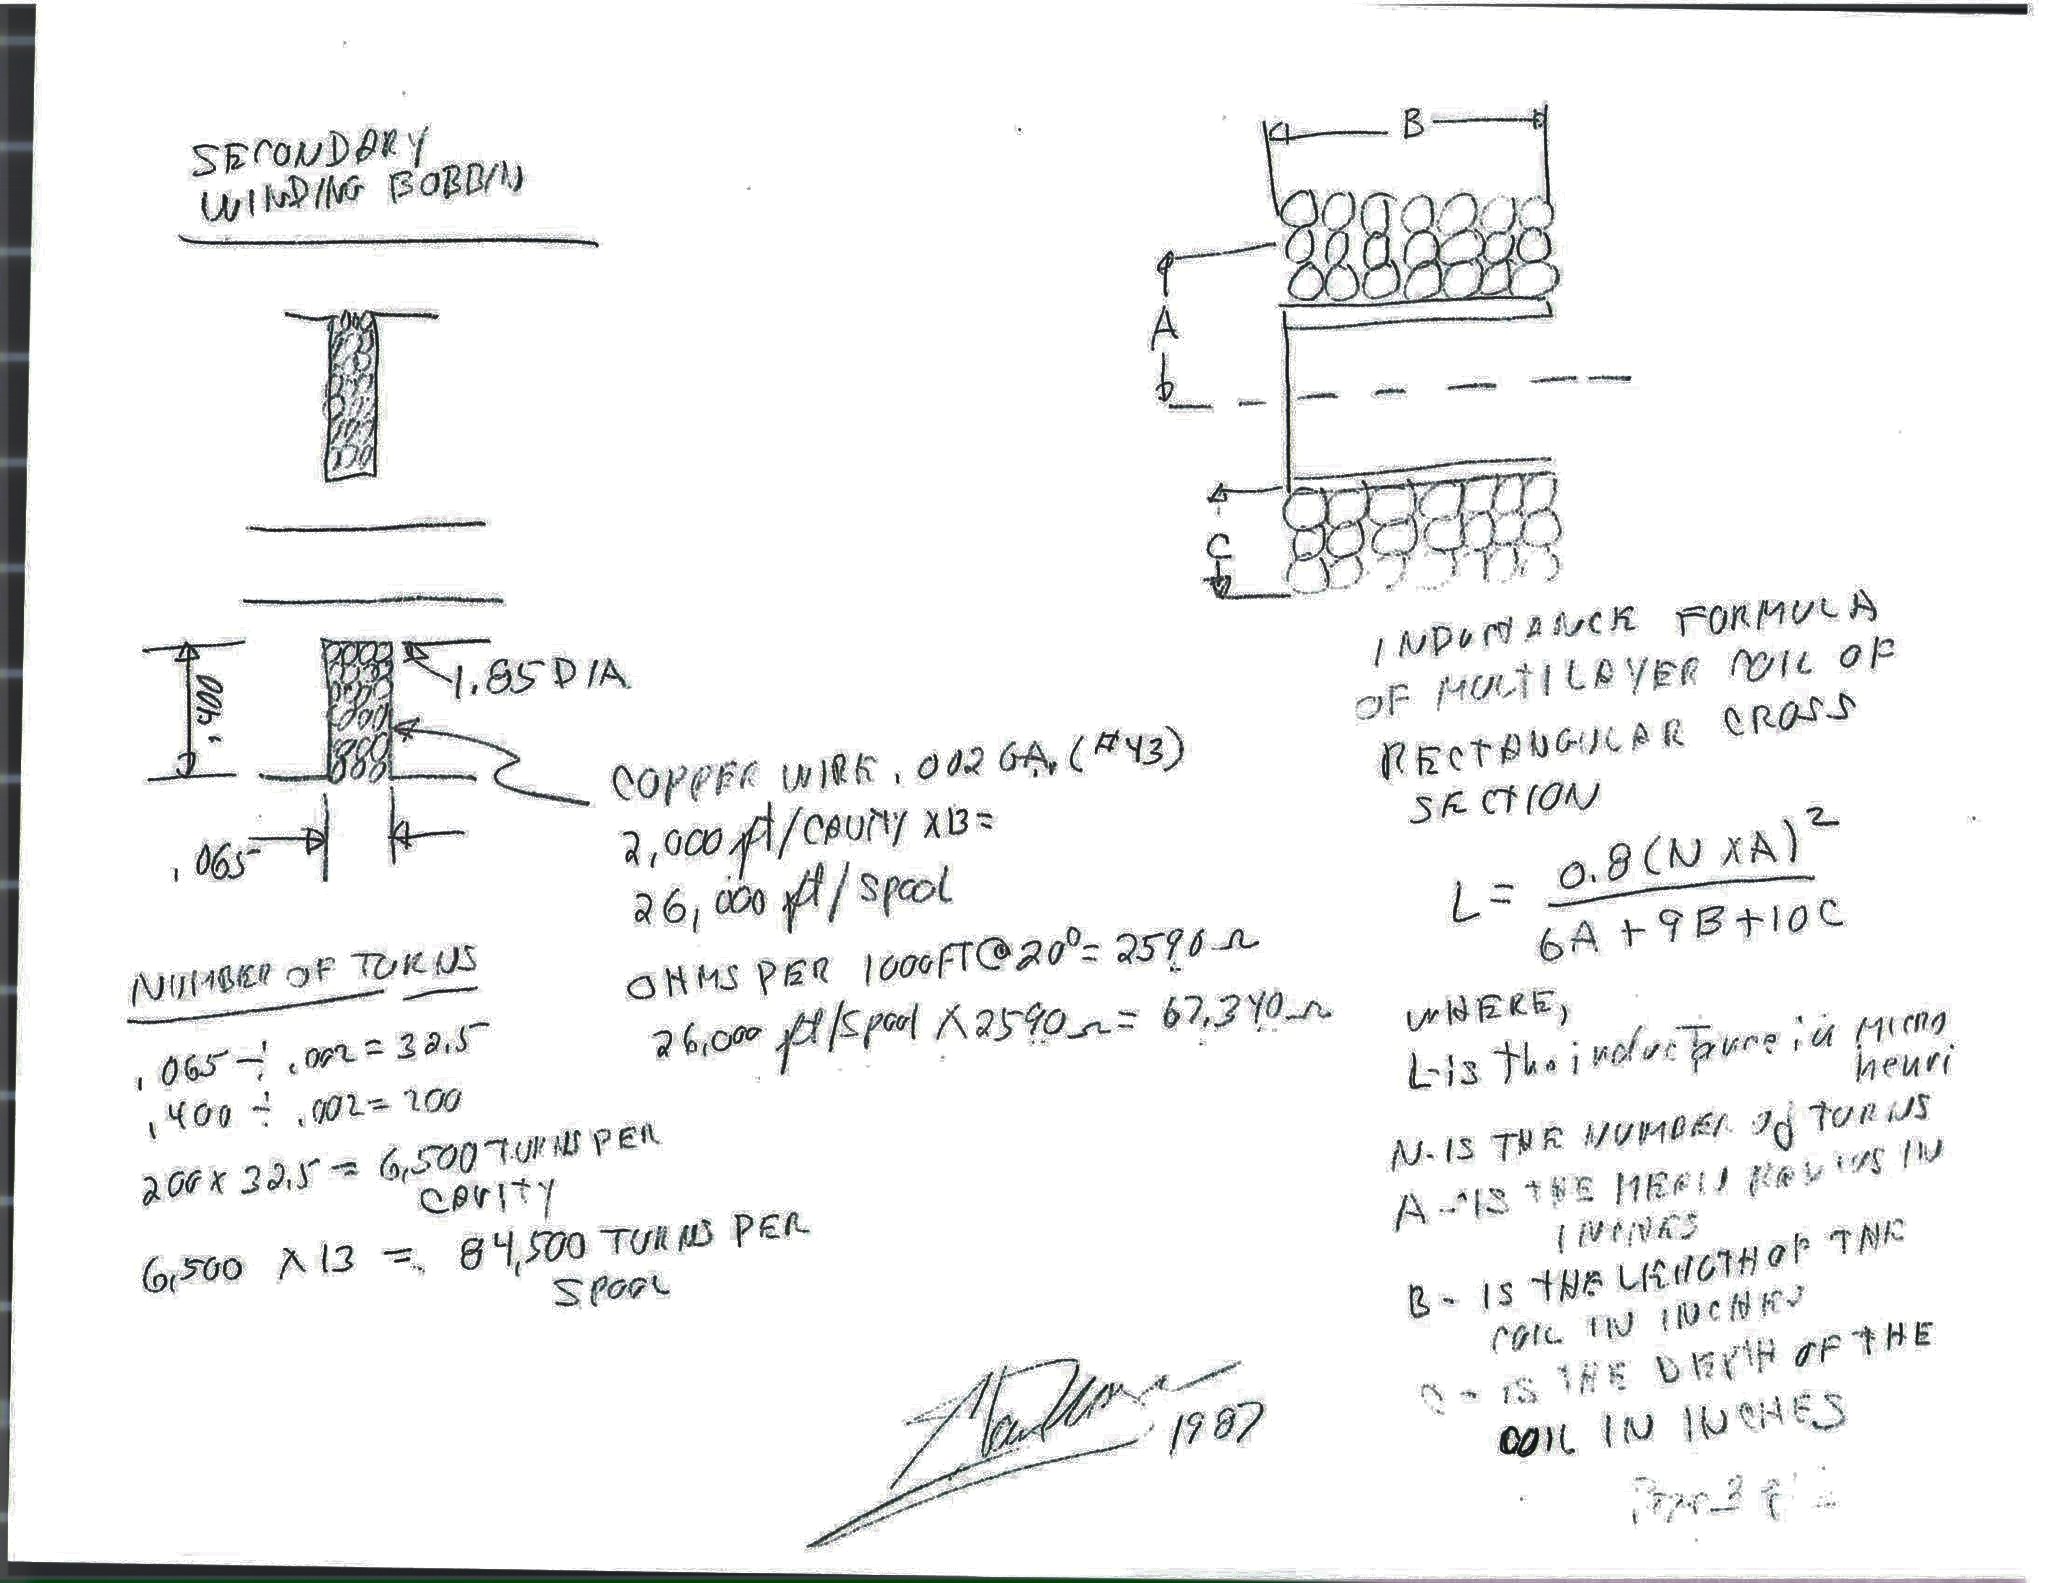 SECONDARY
WINDING BOBBIN
.400
1.85 DIA
.065
COPPER WIRE .002 GA. (#43)
2,000 ft/CAVITY X13 =
26,000 ft/spool
OHMS PER 1000FT@20° = 2590Ω
26,000 ft/spool X 2590Ω = 67,340Ω
NUMBER OF TURNS
.065 ÷ .002 = 32.5
.400 ÷ .002 = 200
200 x 32.5 = 6,500 TURNS PER
CAVITY
6,500 X 13 = 84,500 TURNS PER
SPOOL
B
A
C
INDUCTANCE FORMULA
OF MULTILAYER COIL OF
RECTANGULAR CROSS
SECTION
L = 0.8(N XA)²
6A + 9B + 10C
WHERE,
L-is the inductance in MICRO
henri
N-IS THE NUMBER of TURNS
A-IS THE MEAN RADIUS IN
INCHES
B-IS THE LENGTH OF THE
COIL IN INCHES
C-IS THE DEPTH OF THE
COIL IN INCHES
1987